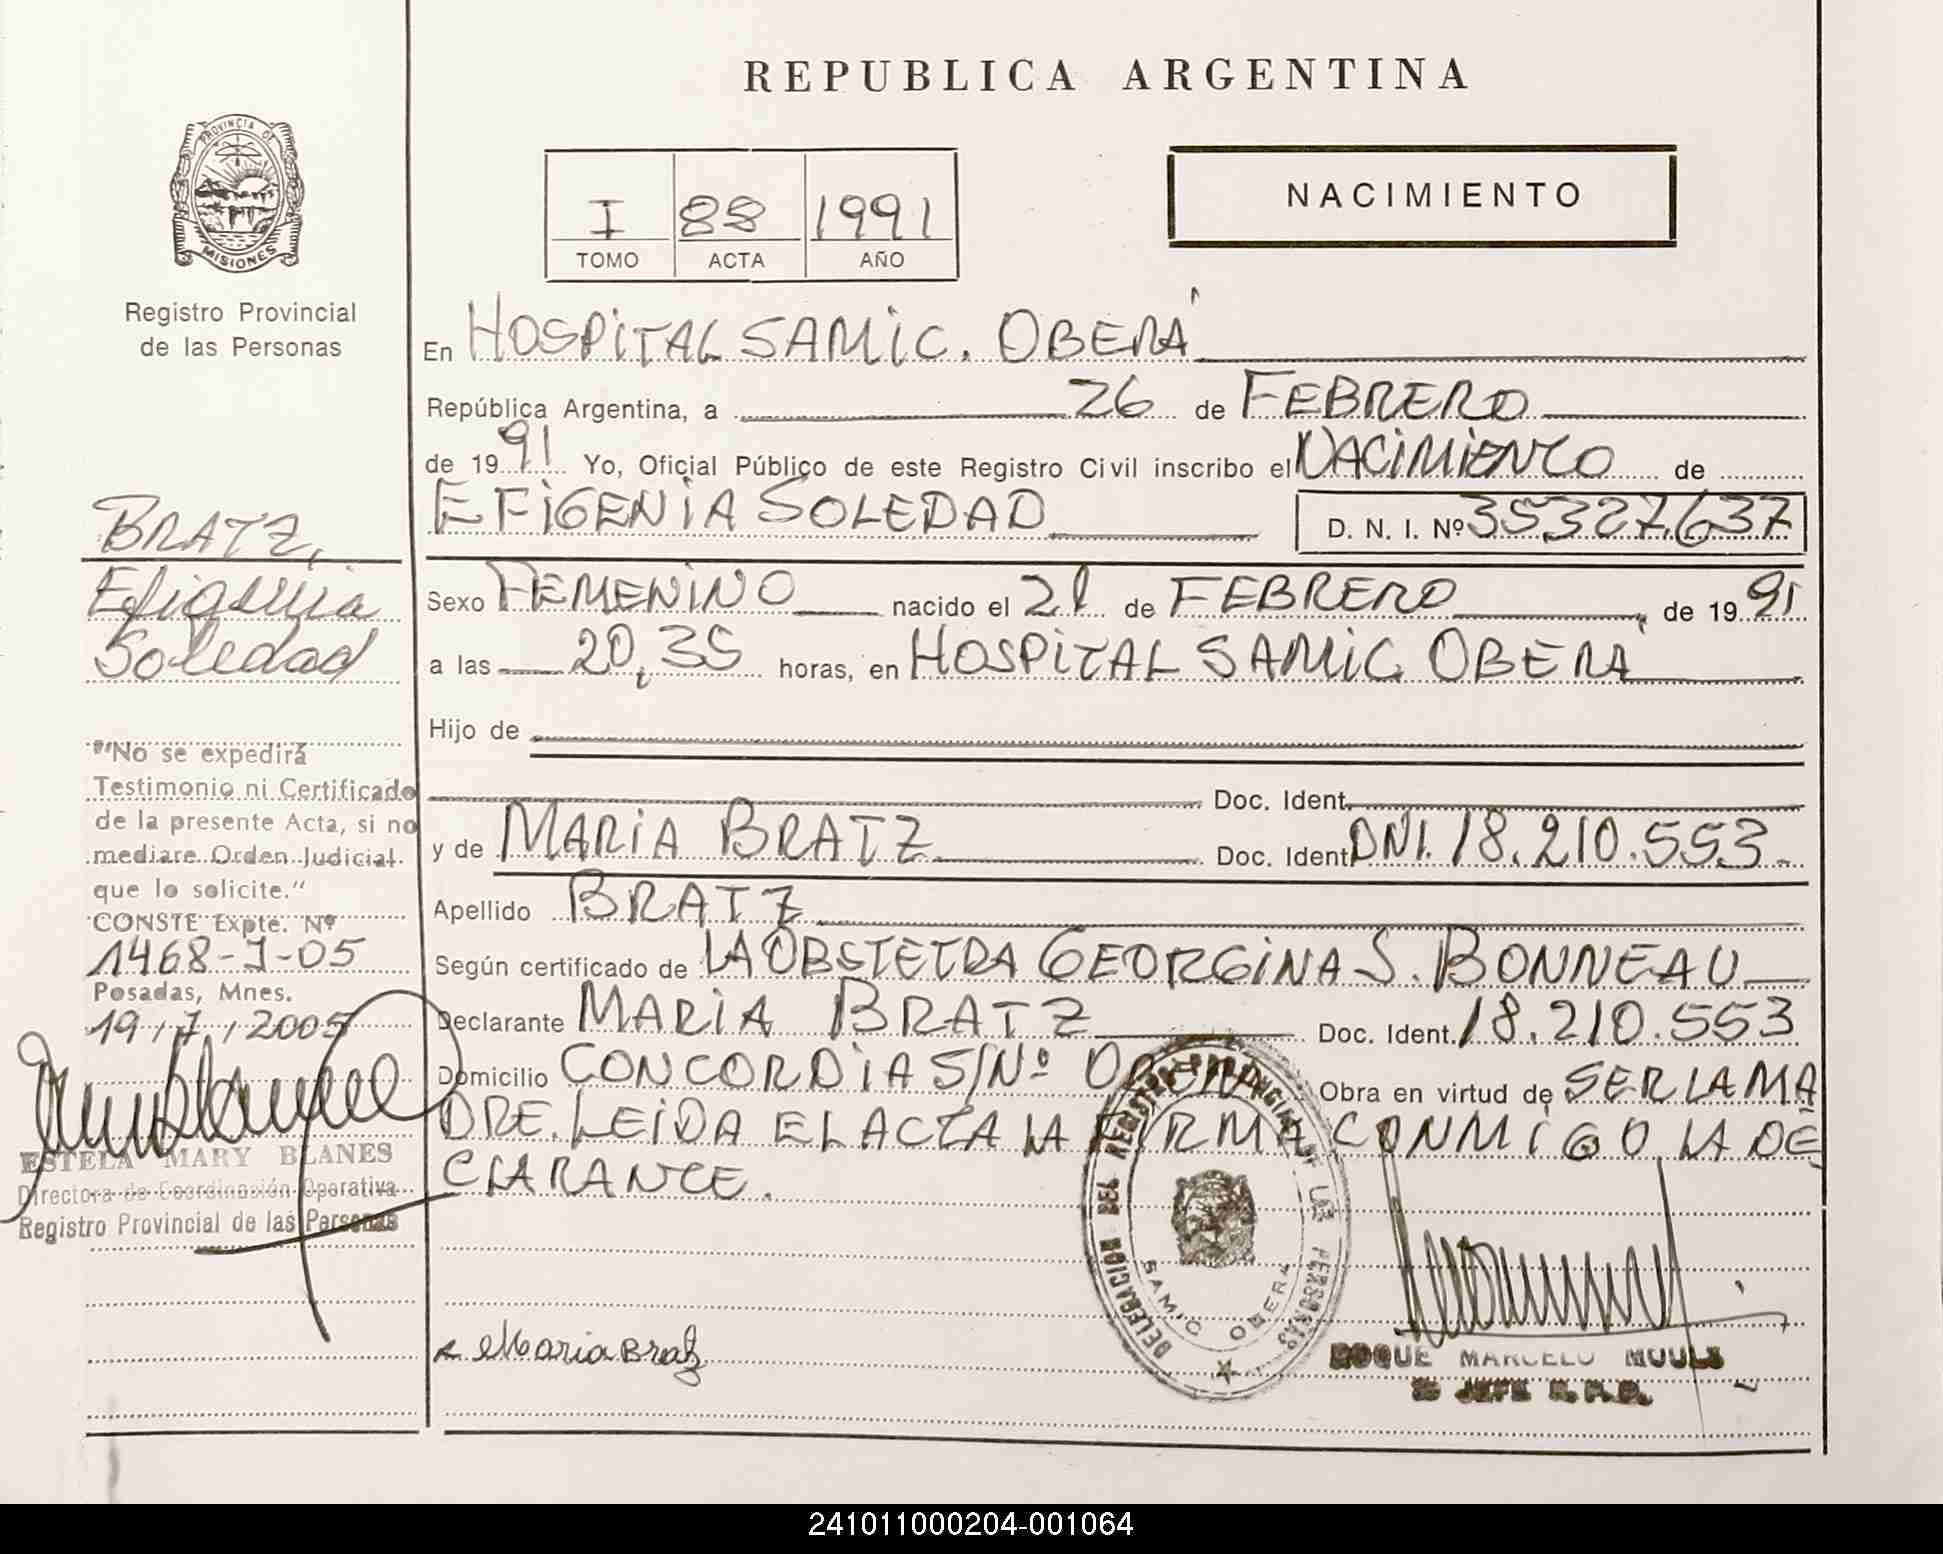 REPUBLICA ARGENTINA
PROVINCIA DE
MISIONES
Registro Provincial
de las Personas
I 88 1991
TOMO ACTA AÑO
NACIMIENTO
En HOSPITAL SAMIC. OBERÁ
República Argentina, a 26 de FEBRERO
de 1991 Yo, Oficial Público de este Registro Civil inscribo el NACIMIENTO de
EFIGENIA SOLEDAD D. N. I. Nº 35.327.637
Sexo FEMENINO nacido el 21 de FEBRERO, de 1991
a las 20,35 horas, en HOSPITAL SAMIC OBERÁ
Hijo de
Doc. Ident.
y de MARIA BRATZ Doc. Ident DNI. 18.210.553
Apellido BRATZ
Según certificado de LA OBSTETRA GEORGINA S. BONNEAU
Declarante MARIA BRATZ Doc. Ident. 18.210.553
Domicilio CONCORDIA S/Nº Obra en virtud de SER LA MA
DRE. LEIDA EL ACTA LA FIRMA CONMIGO LA DE
CLARANTE.
BRATZ,
Efigenia
Soledad
"No se expedirá
Testimonio ni Certificado
de la presente Acta, si no
mediare Orden Judicial
que lo solicite."
CONSTE Expte. Nº
1468-J-05
Posadas, Mnes.
19/7/2005
ESTELA MARY BLANES
Directora de Coordinación Operativa
Registro Provincial de las Personas
Maria Bratz
DELEGACION DEL REGISTRO PROVINCIAL DE LAS PERSONAS
SAMIC OBERA
ROQUE MARCELO
JEFE
241011000204-001064